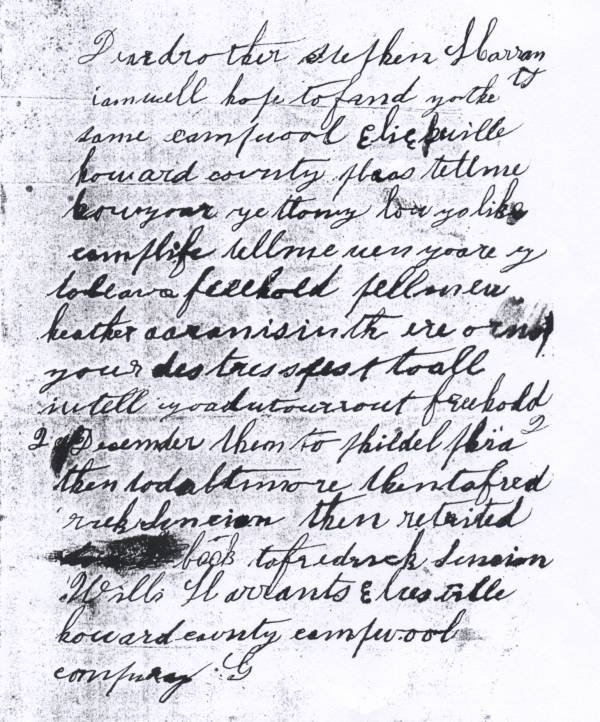 Deardrother stephen Harran
ts
iamwell hope tofand yothe
same campwool Elickville
howard county pleas tellme
howyoar ye ttomy how yo like
camplife tellme wen yoare
toleava freehold tellmeu
heather aaranisinth ere
your destress fest to all
intell yoadutourrout freehold
2 Desember them to phildel phia 2
then todabtimore thentafred
rick Senceion then retrited
back tofredrick Sencion
Wills Harrants Elicsville
howardcounty campwool
company G